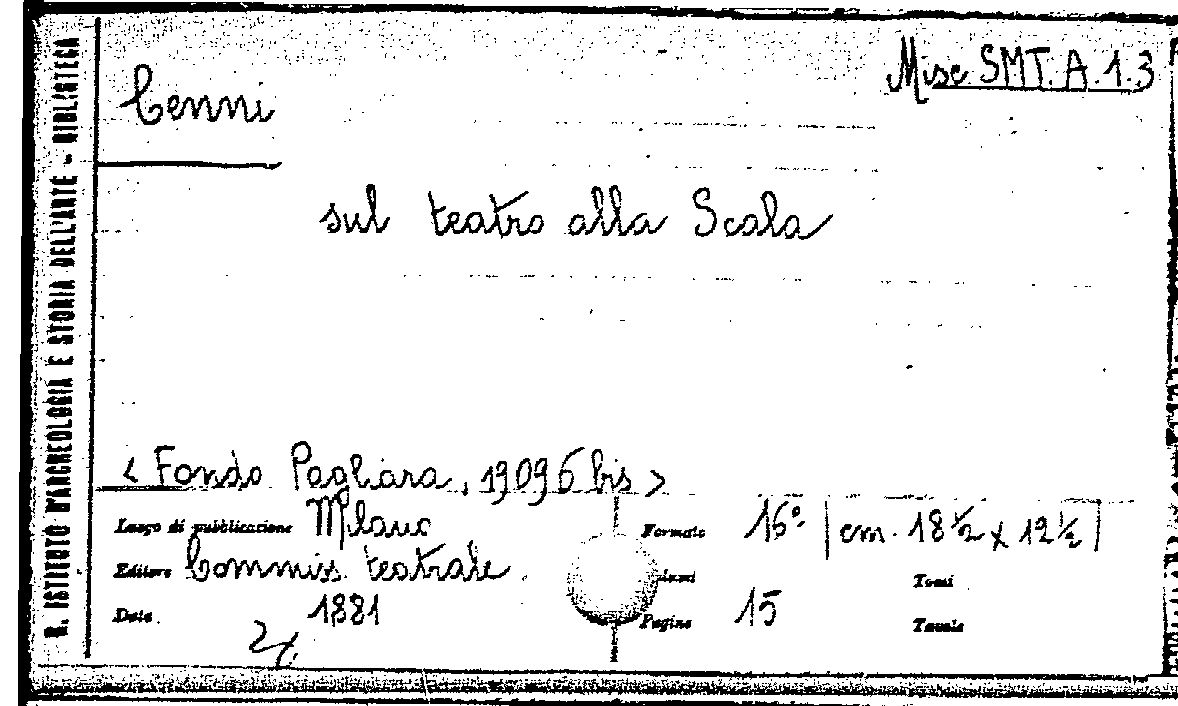 R. ISTITUTO D'ARCHEOLOGIA E STORIA DELL'ARTE - BIBLIOTECA
Misc SMT. A. 1.3
Cenni
sul teatro alla Scala
< Fondo Pagliara, 19096 bis >
Luogo di pubblicazione Milano
Formato 16° | cm. 18 ½ x 12 ½ |
Editore Commiss. teatrale.
Tomi
Data 1881
Pagine 15
Tavole